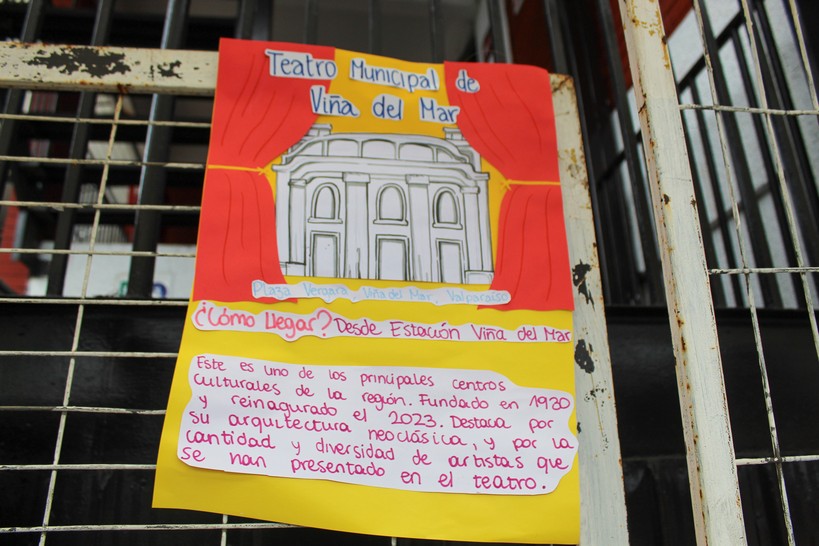 Teatro Municipal de
Viña del Mar
Plaza Vergara, Viña del Mar, Valparaíso
¿Cómo Llegar? Desde Estación Viña del Mar
Este es uno de los principales centros
culturales de la región. Fundado en 1930
y reinagurado el 2023. Destaca por
su arquitectura neoclásica, y por la
cantidad y diversidad de artistas que
se han presentado en el teatro.